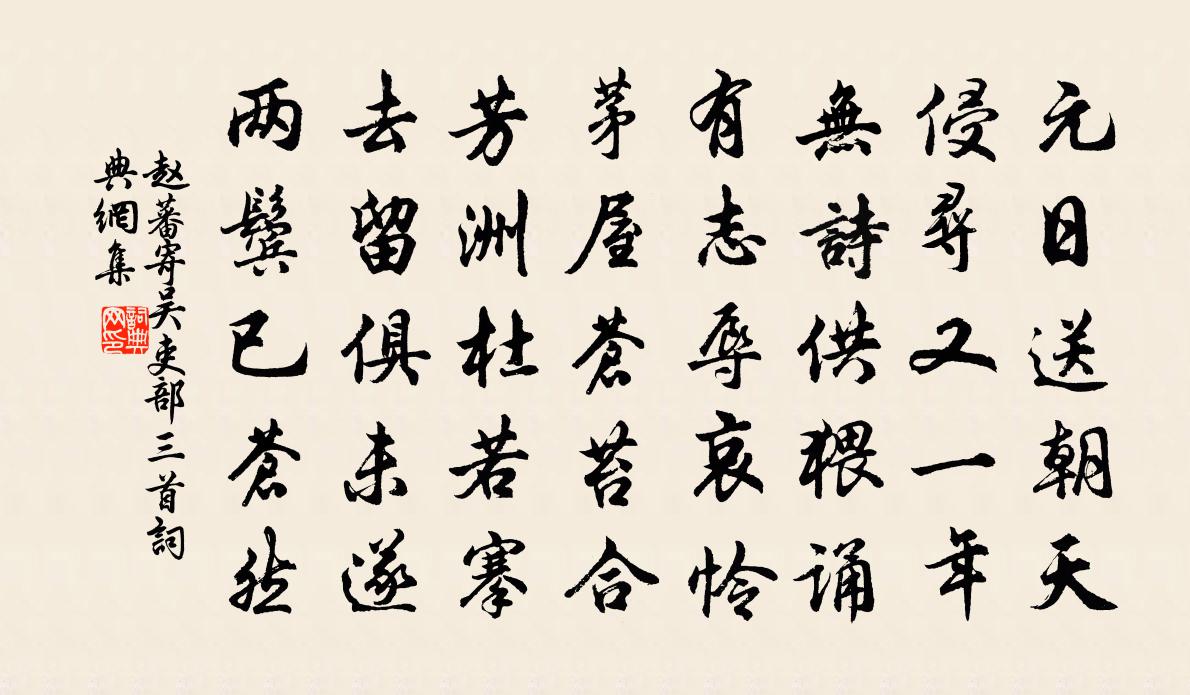 元日送朝天
侵尋又一年
無詩供猥誦
有志辱哀怜
茅屋蒼苔合
芳洲杜若搴
去留俱未遂
两鬓已蒼然
赵蕃寄吴吏部三首詞
典網集
詞典
网印